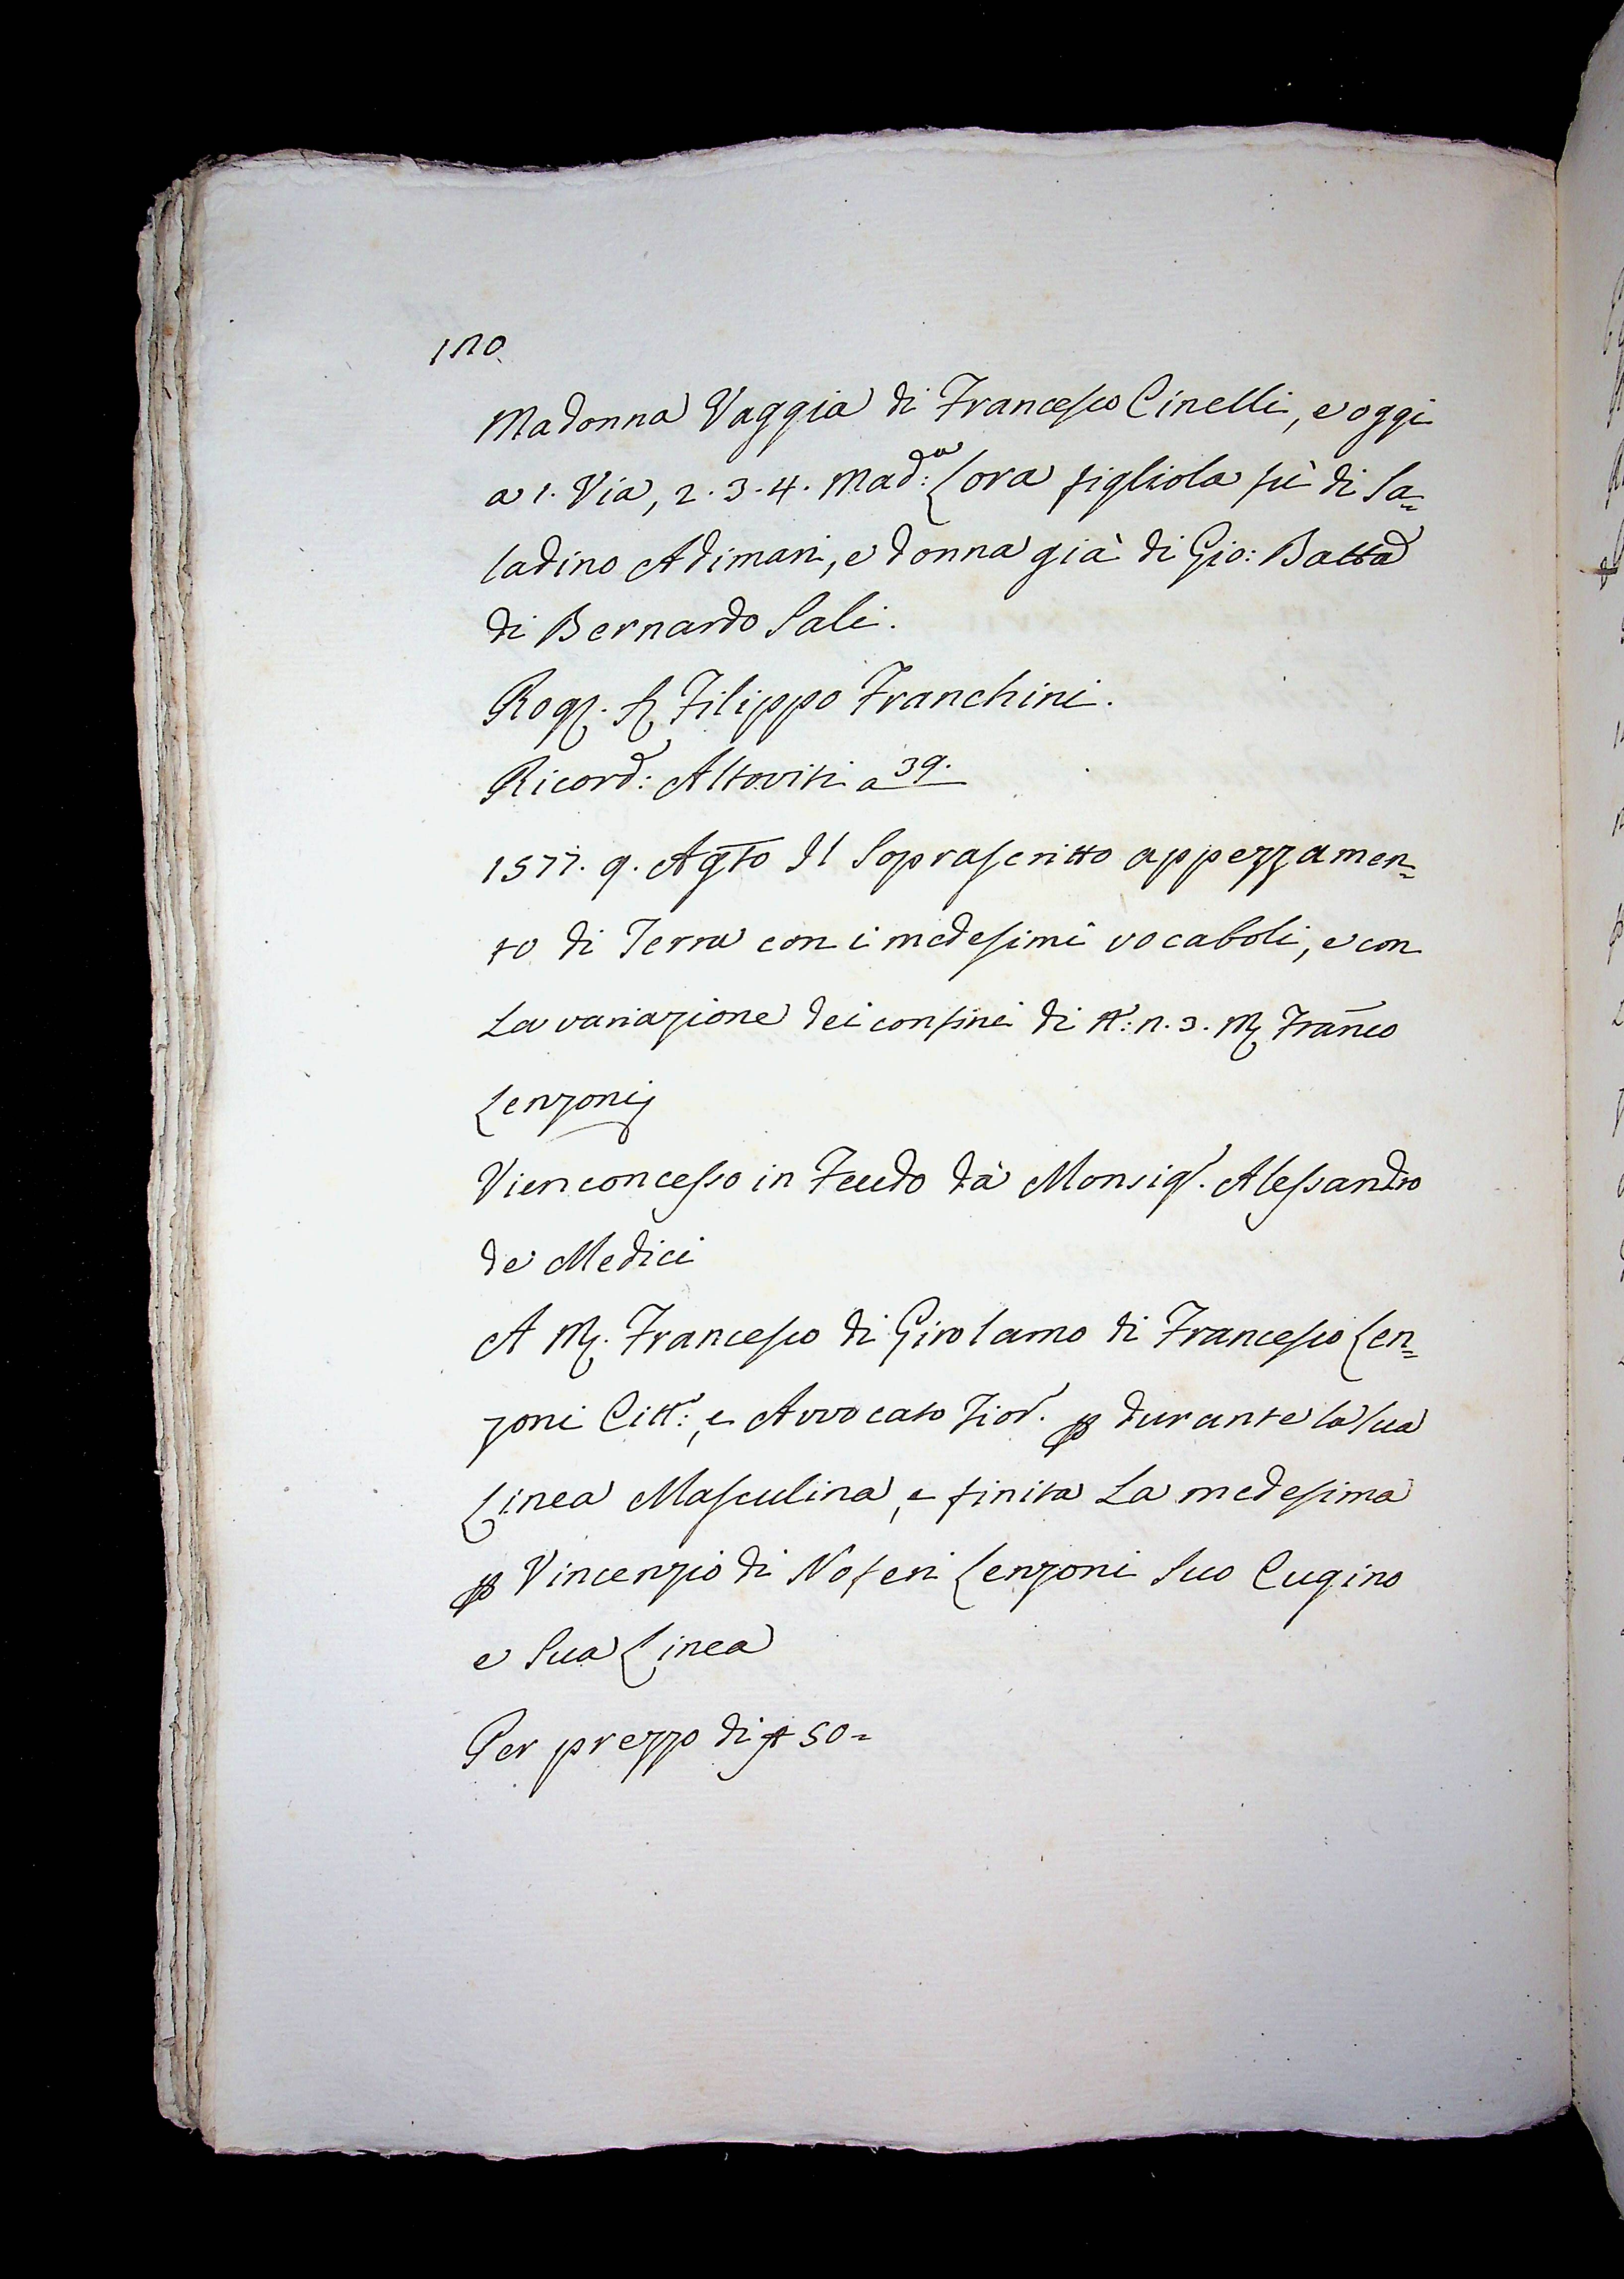 Madonna Vaggia di Francesco Cinelli, e oggi
a 1. Via, 2. 3. 4. Mad:ª Lora figliola fù di Sa=
ladino Adimari, e donna già di Gio: Batta
di Bernardo Sali.
Rog. S Filippo Franchini.
Ricord: Altoviti a 39.
1577. 9. Agto Il Soprascritto appezzamen=
to di Terra con i medesimi vocaboli, e con
La variazione dei confini di n. 3. M Franco
Lenzoni
Vien concesso in Feudo dà Monsig. Alessandro
de Medici
A M. Francesco di Girolamo di Francesco Len=
zoni Citt:, e Avvocato Fior. p durante la sua
Linea Masculina, e finita La medesima
p Vincenzio di Noferi Lenzoni Suo Cugino
e Sua Linea
Per prezzo di 50=